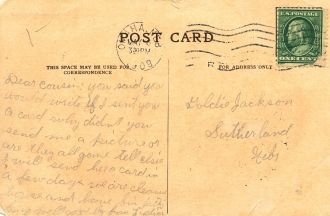 1-
OMAHA
330PM
POST CARD
U.S. POSTAGE
ONE CENT
THIS SPACE MAY BE USED FOR
CORRESPONDENCE
FOR ADDRESS ONLY
Dear Cousin: you said you
would write if I sent you
a card why didn't you
send me a picture or
are they all gone tell elsie
I will send her a card in
a few days we are cleaning
house and
Goldie Jackson
Sutherland
Nebr